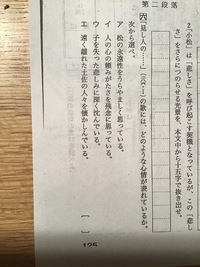 第二段落
2「小松」は「悲しさ」を呼び起こす契機となっているが、この「悲し
さ」をさらにつのらせる光景を、本文中から十五字で抜き出せ。
六「見し人の……」の歌には、どのような心情が表れているか。
次から選べ。
ア 松の永遠性をうらやましく思っている。
イ 人の心の頼みがたさを残念に思っている。
ウ 子を失った悲しみに深く沈んでいる。
エ 遠く離れた土佐の人々を懐かしんでいる。
[ ]